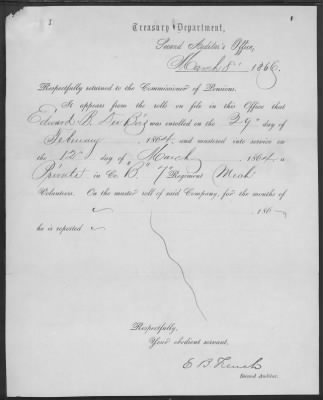 Treasury Department,
Second Auditor's Office,
March 8' 1866.
Respectfully returned to the Commissioner of Pensions.
It appears from the rolls on file in this Office that
Edward R. was enrolled on the 29" day of
February 1864, and mustered into service on
the 12" day of March 1864, a
Private in Co. "B." 7" Regiment Mich
Volunteers. On the muster roll of said Company, for the months of
186
he is reported
Respectfully,
Your obedient servant,
E B French
Second Auditor.